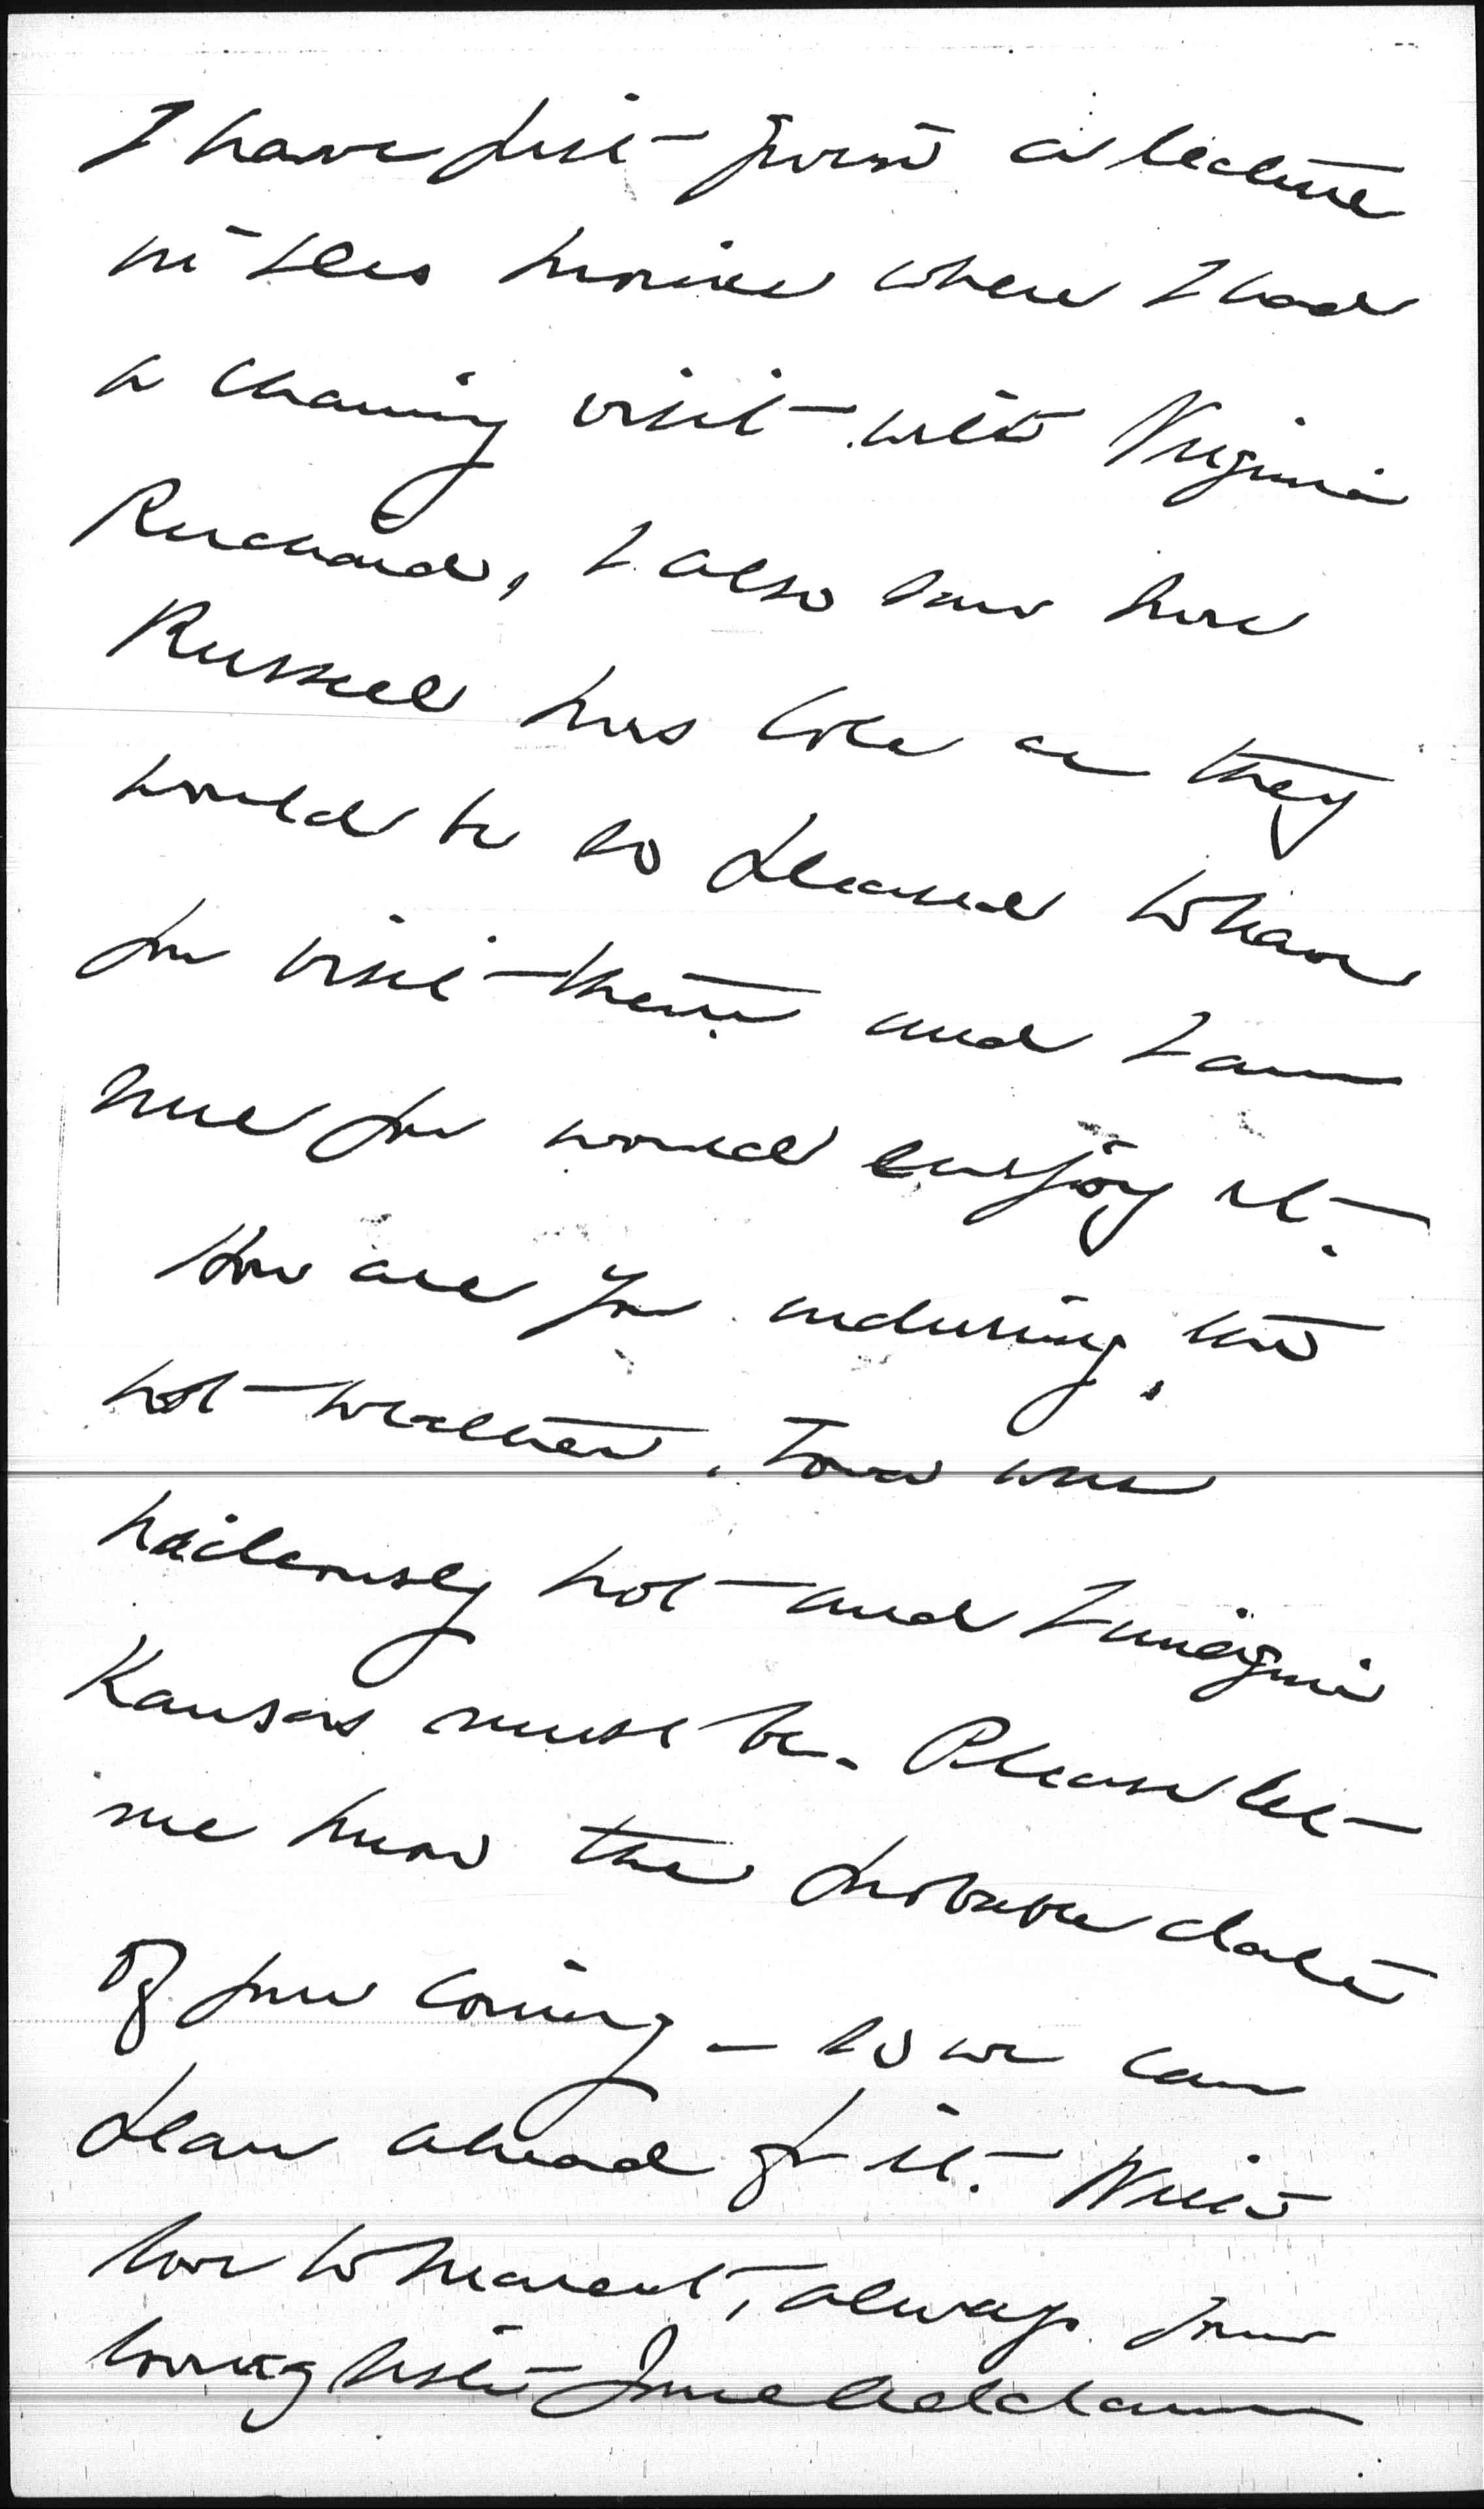 I have just given a lecture
in Des Moines where I had
a charming visit with Virginia
I also saw
Russell has told me they
would be so pleased to have
you visit them and I am
sure you would enjoy it.
How are you enduring the
hot weather. Iowa was
hideously hot and I imagine
Kansas must be. Please let
me know the probable date
of your coming – so we can
plan ahead for it. With
love to Marcet, always your
loving sister Jane Addams